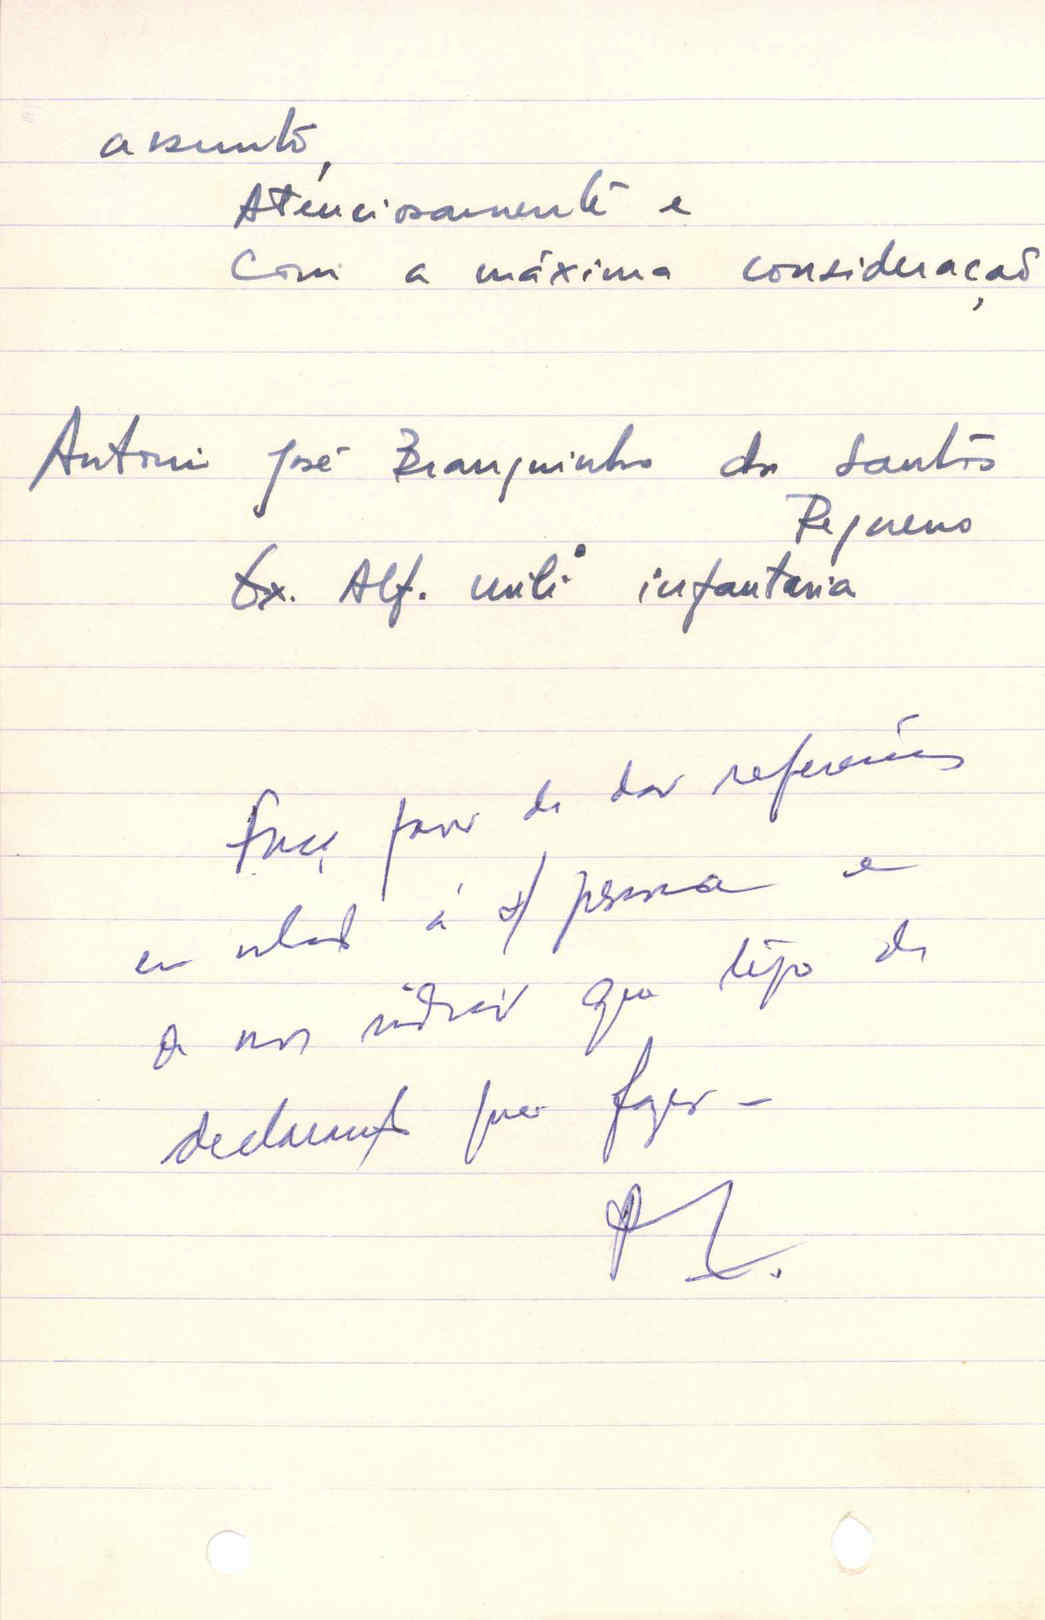 assunto,
Atenciosamente e
Com a máxima consideração
António José Branquinho dos Santos
Pequeno
Ex. Alf. milº infantaria
Faça favor de dar referências
em relação à s/ pessoa e
a nos indicar que tipo de
declaração quer fazer –